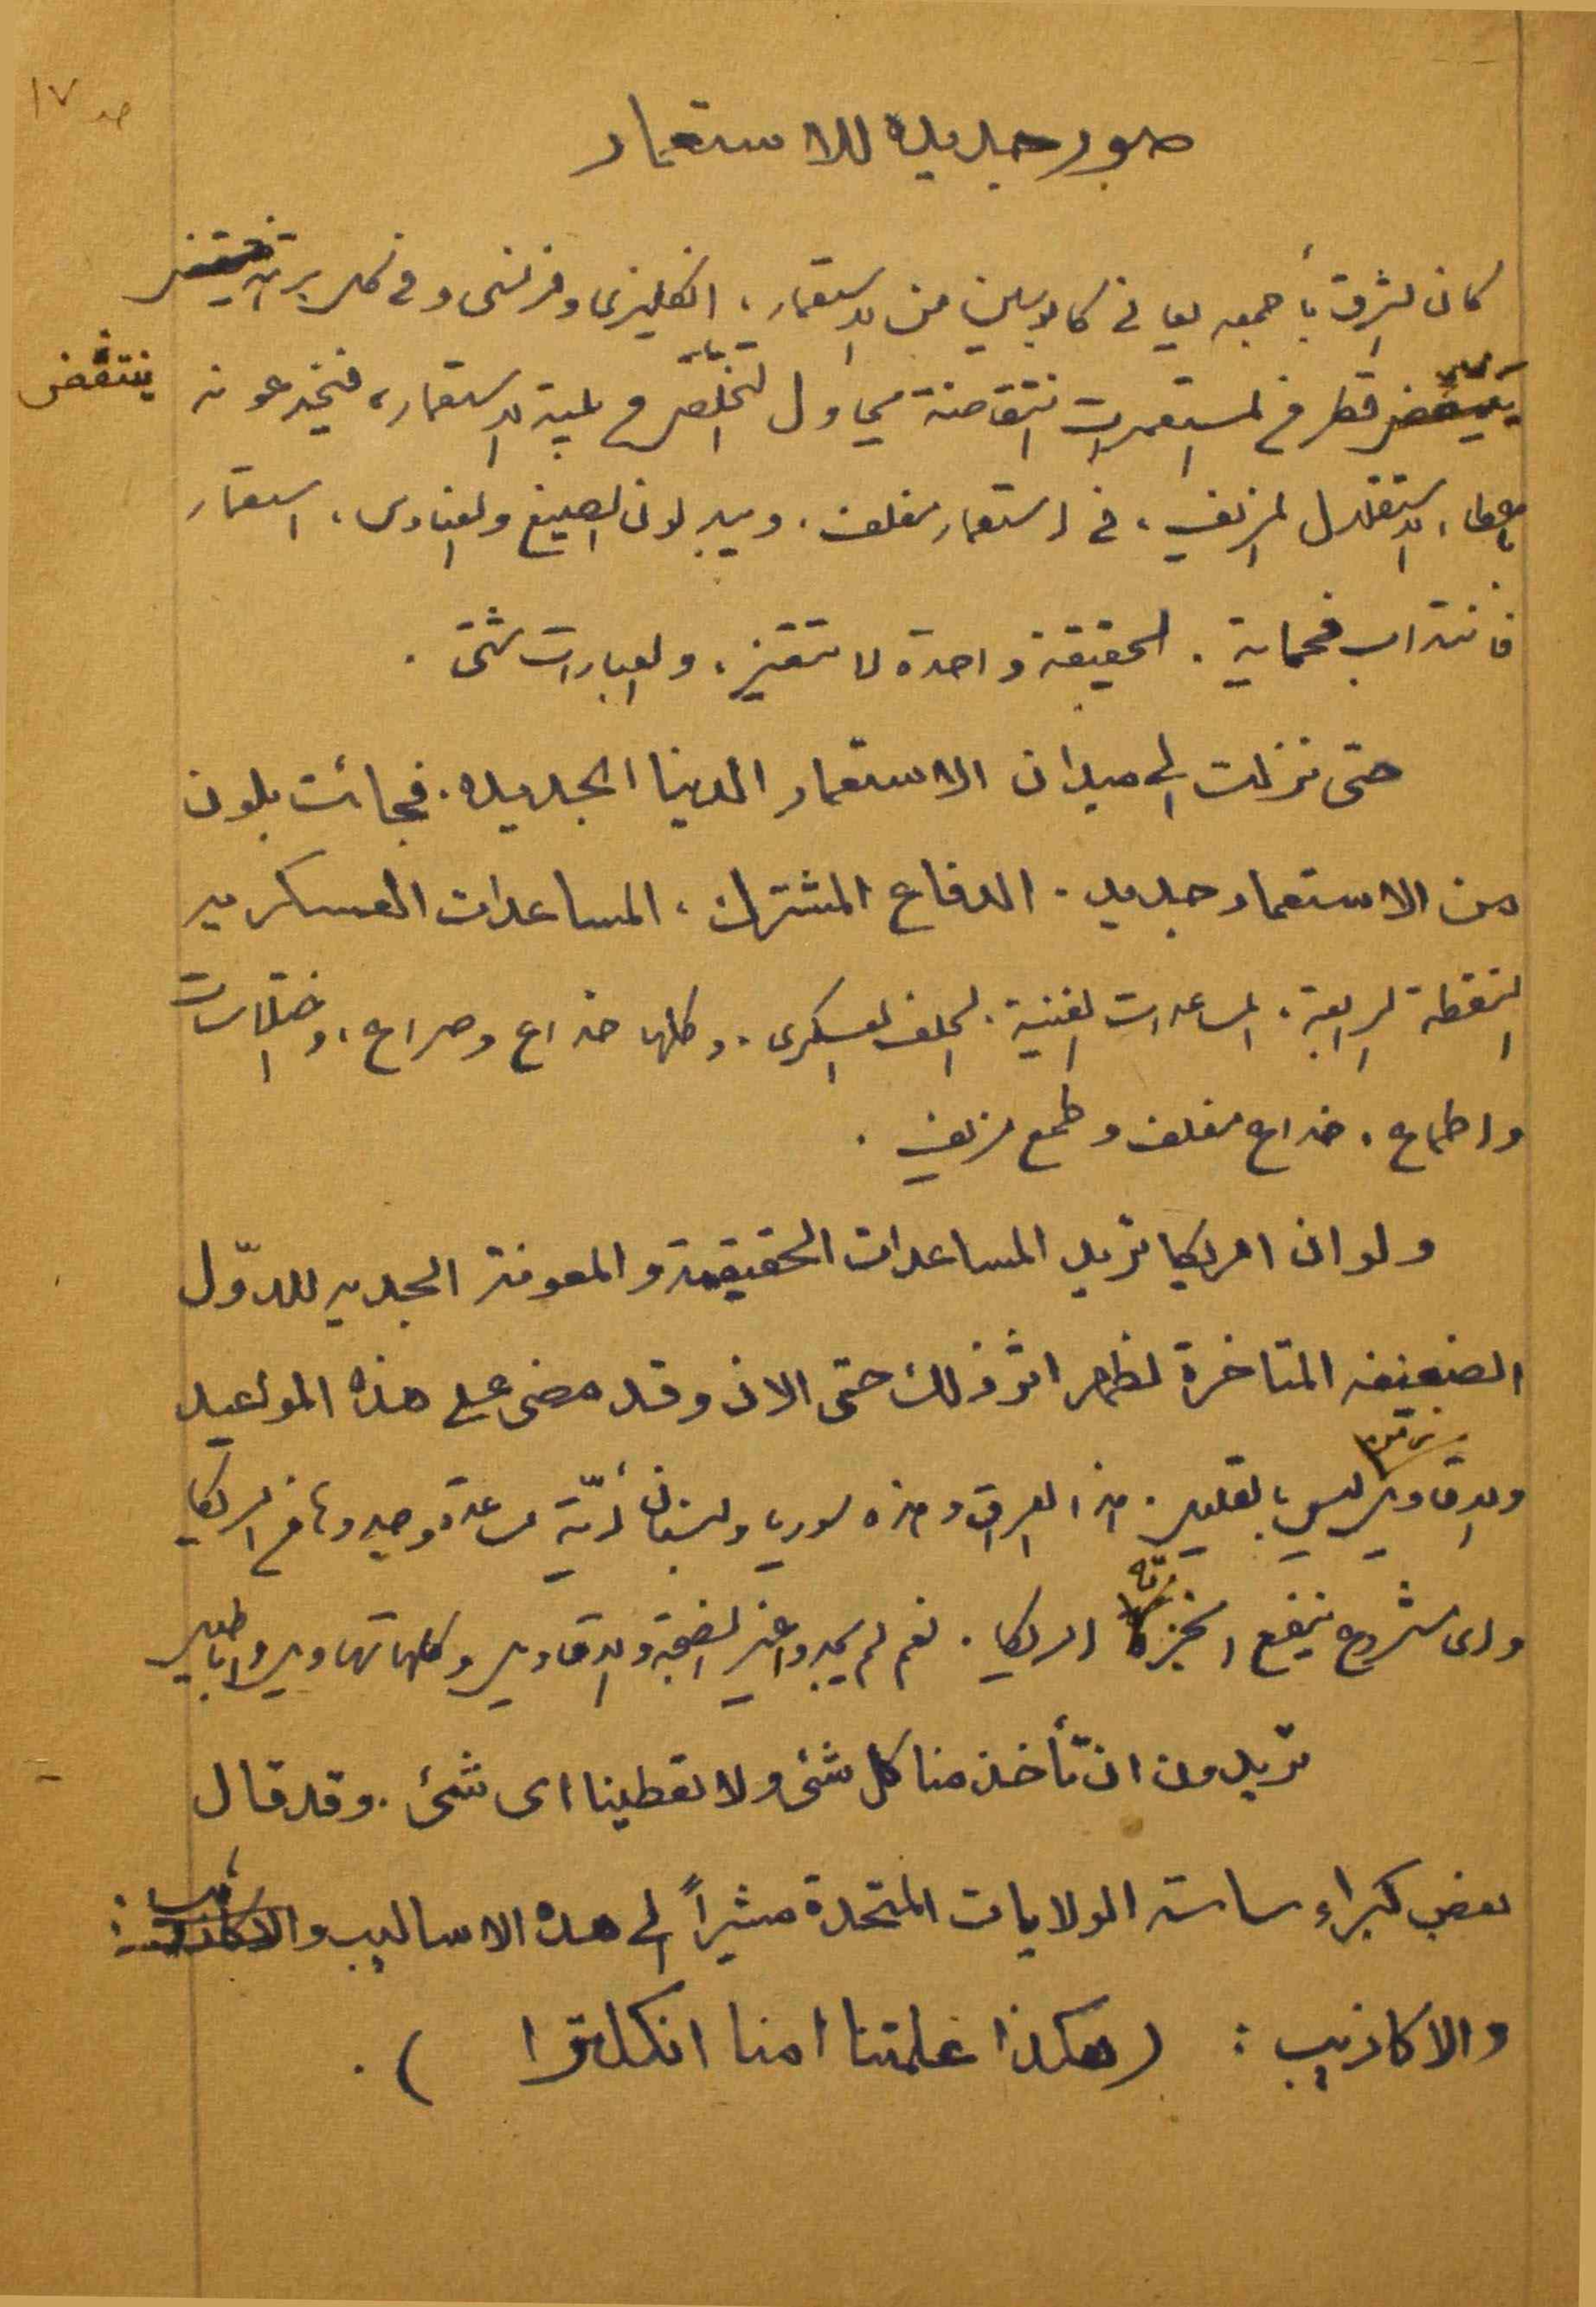 صـ ١٧
صور جديده للاستعمار
كان الشرق بأجمعه يعاني كابوسين من الاستعمار، انكليزي وفرنسي وفي كل برهة
ينتفض قطر من المستعمرات انتفاضة يحاول التخلّص من بلية الاستعمار، فيخدعونه
باعطاء الاستقلال المزيف، في استعمار مغلف. ويبدلون الصيغ والعناوين، استعمار
فانتداب فحماية. الحقيقة واحدة لا تتغير، والعبارات شتى.
حتى نزلت الى ميدان الاستعمار الدنيا الجديده. فجائت بلون
من الاستعمار جديد. الدفاع المشترك، المساعدات العسكريه
النقطة الرابعة. المساعدات الفنية. الحلف العسكري. وكلها خداع وصراع، واختلاسات
واطماع. خداع مغلف وطمع مزيف.
ولو ان امريكا تريد المساعدات الحقيقية والمعونة الجديه للدوّل
الضعيفه المتاخرة لظهر اثر ذلك حتى الان وقد مضى على هذه المواعيد
والاقاويل زمن ليس بالقليل. هذا العراق وهذه سوريا ولبنان أيّة مساعدة وجدوها من امريكا
واى مشروع ينفع انجزته امريكا. نعم لم يجدوا غير الضجة والاقاويل وكلها تهاويل واباطيل
تريدون ان تأخذ منا كل شئ ولا تعطينا اى شئ. وقد قال
بعض كبراء ساسة الولايات المتحدة مشيراً الى هذه الاساليب
والاكاذيب : (هكذا علمتنا امنا انكلترا).